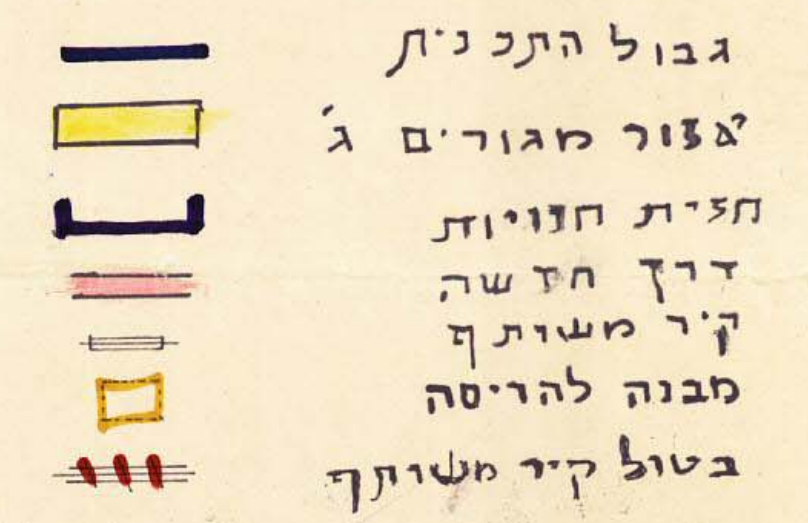 גבול התכנית
אזור מגורים ג'
חזית חנויות
דרך חדשה
קיר משותף
מבנה להריסה
בטול קיר משותף